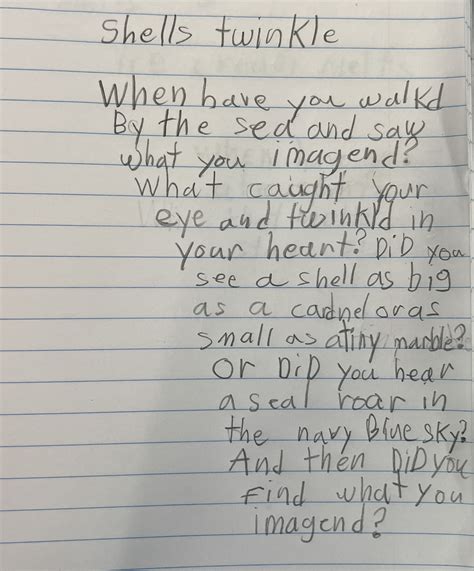 Shells twinkle
When have you walkd
By the sea and saw
what you imagend?
What caught your
eye and twinkld in
your heart? DiD you
see a shell as big
as a cardnel or as
small as a tiny marble?
Or DiD you hear
a seal roar in
the navy Blue sky?
And then DiD you
Find what you
imagend?